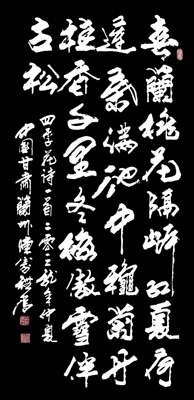 春蘭桃花隔岸红夏荷
蓬滿池中穐菊丹
桂香千里冬梅傲雪伴
古松
四季花诗一首二零一二龍年仲夏
中國甘肅蘭州